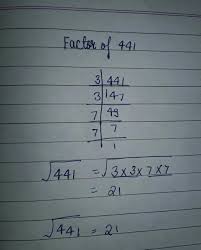 Factor of 441
3 | 441
3 | 147
7 | 49
7 | 7
| 1
√441 = √3×3×7×7
= 21
√441 = 21